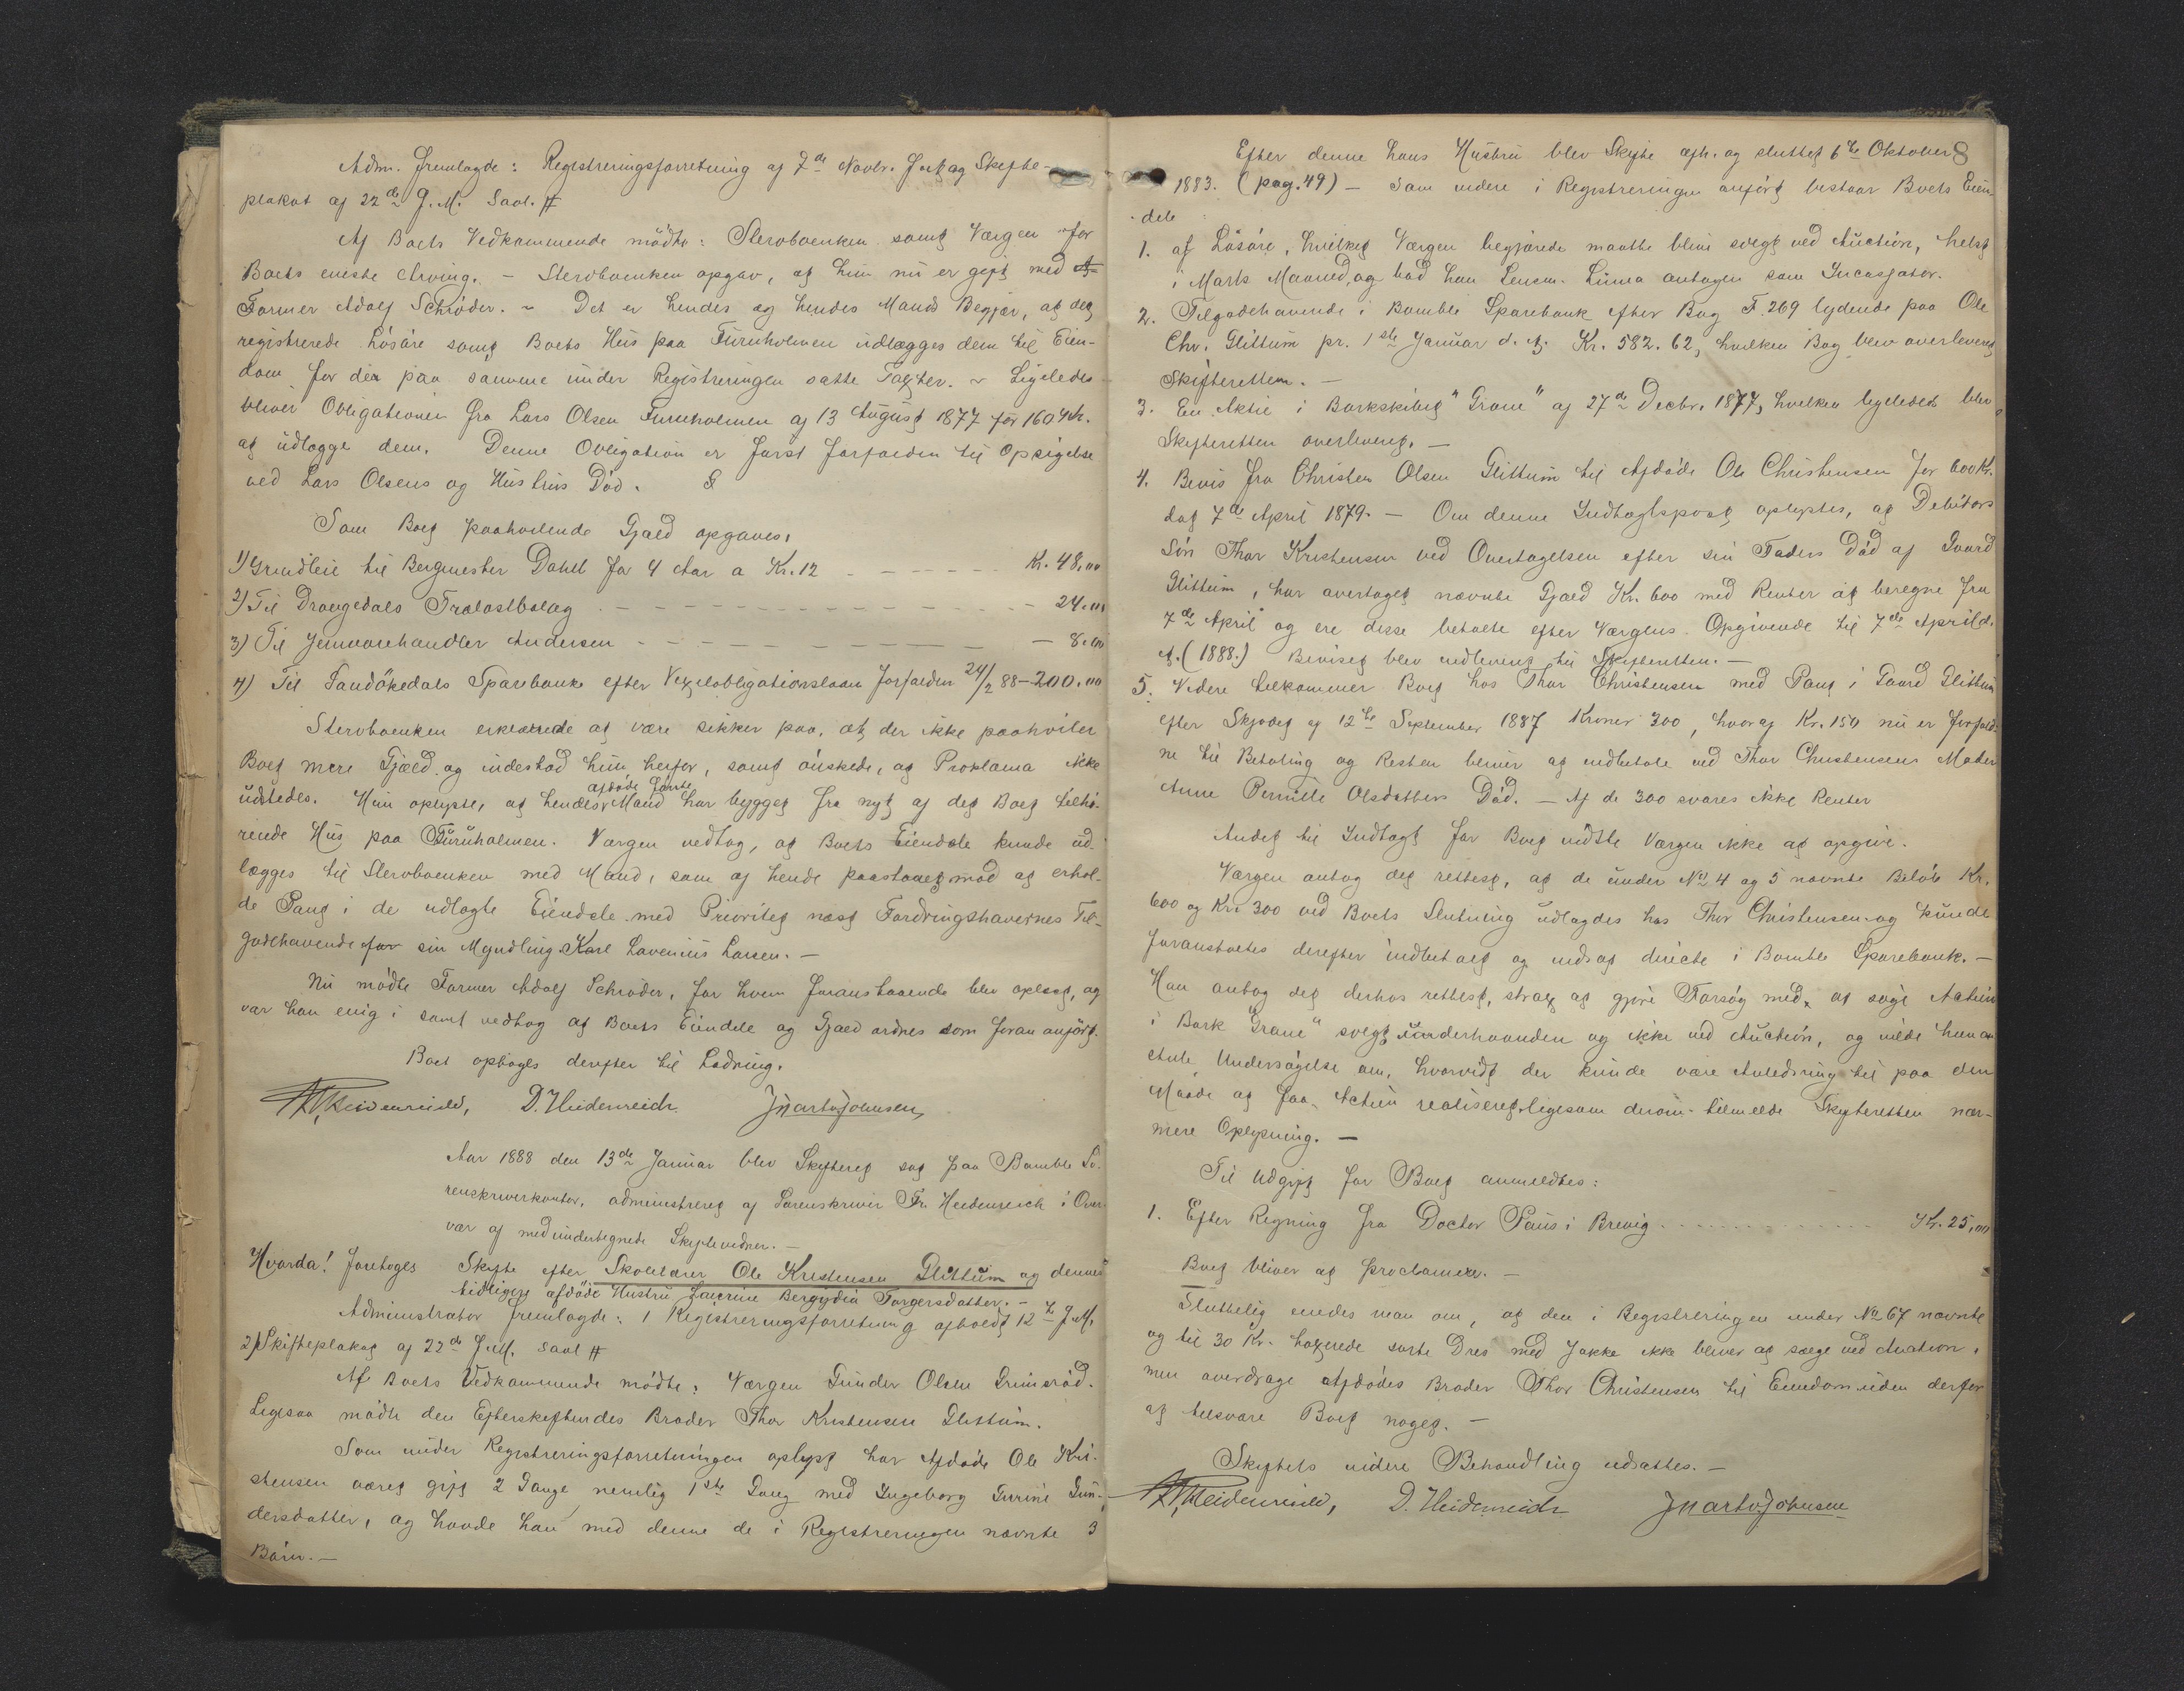 Adm. fremlagde: Registreringsforretning af 7de Novbr. f. A. og Skifte-
plakat af 22de f. M. saal. #
Af Boets Vedkommende mödte: Stervboenken samt Værgen for
Boets eneste Arving. – Stervboenken opgav, at hun nu er gift med
Farmer Adolf Schrøder. – Det er hendes og hendes Mands Begjær, at det
registrerede Lösöre samt Boets Hus paa Furuholmen udlægges dem til Eien-
dom for den paa samme under Registreringen satte Taxter. – Ligeledes
bliver Obligationen fra Lars Olsen Furuholmen af 13 August 1877 for 160 Kr.
at udlægge dem. Denne Obligation er först forfalden til Opsigelse
ved Lars Olsens og Hustrus Död.
Som Boet paahvilende Gjæld opgaves:
1) Grundleie til Bergmester Dahll for 4 Aar a Kr. 12 – – – – Kr. 48,00
2) Til Drangedals Trælastbolag – – – – 24,00
3) Til Jernvarehandler Andersen – – – – 8,00
4) Til Sandökedals Sparebank efter Vexelobligationslaan forfalden 24/2 88 – 200,00
Stervboenken erklærede at være sikker paa, at der ikke paahviler
Boet mere Gjæld og indestod hun herfor, samt önskede, at Proklama ikke
udstedes. Hun oplyste, at hendes afdöde förste Mand har bygget fra nyt af det Boet tilhö-
rende Hus paa Furuholmen. Værgen vedtog, at Boets Eiendele kunde ud-
lægges til Stervboenken med Mand, som af hende paastaaet mod at erhol-
de Pant i de udlagte Eiendele med Prioritet næst Fordringshavernes Til-
godehavende for sin Myndling Karl Lavenius Larsen. –
Nu mödte Farmer Adolf Schröder, for hvem foranstaaende blev oplæst, og
var han enig i samt vedtog at Boets Eiendele og Gjæld ordnes som foran anfört.
Boet optoges derefter til Lodning.
Fr. Heidenreich, D. Heidenreich J Marto Johnsen,
Aar 1888 den 13de Januar blev Skifteret sat paa Bamble So-
renskriverkontor, administreret af Sorenskriver Fr. Heidenreich i Over-
vær af medundertegnede Skiftevidner. –
Hvorda! Foretoges Skifte efter Skolelærer Ole Kristensen Glittum og dennes
tidligere afdöde Hustru Laurine Bergydia Torgersdatter. –
Administrator fremlagde: 1 Registreringsforretning afholdt 12te f. M.
2) Skifteplakat af 22de f. M. saal #
Af Boets Vedkommende mödte: Værgen Gunder Olsen Grimeröd.
Ligesaa mödte den Efterskiftendes Broder Thor Kristensen Glittum.
Som under Registreringsforretningen oplyst har Afdöde Ole Kri-
stensen været gift 2 Gange nemlig 1ste Gang med Ingeborg Gurine Gun-
dersdatter, og havde han med denne de i Registreringen nævnte 3
Börn. –
8
Efter denne hans Hustru blev Skifte afh. og sluttet 6te Oktober
1883. (pag. 49) – Som videre i Registreringen anfört bestaar Boets Eien-
dele
1. af Lösöre, hvilket Værgen begjærede maatte blive solgt ved Auction, helst
i Marts Maaned, og bad han Lensm. Linna antagen som Incassator.
2. Tilgodehavende i Bamble Sparebank efter Bog F. 269 lydende paa Ole
Chr. Glittum pr. 1ste Januar d. A. Kr. 582.62, hvilken Bog blev overleveret
Skifteretten. –
3. En Aktie i Barkskibet "Grane" af 27de Decbr. 1877, hvilken ligeledes blev
Skifteretten overleveret. –
4. Bevis fra Christen Olsen Glittum til Afdöde Ole Christensen for 600 Kr.
dat 7de April 1879. – Om denne Indtægtspost oplystes, at Debitors
Sön Thor Kristensen ved Overtagelsen efter sin Faders Död af Gaard
Glittum, har overtaget nævnte Gjæld Kr. 600 med Renter at beregne fra
7de April og ere disse betalte efter Værgens Opgivende til 7de April d.
A. (1888.) Beviset blev udleveret til Skifteretten. –
5. Videre tilkommer Boet hos Thor Christensen med Pant i Gaard Glittum
efter Skjödet af 12te September 1887 Kroner 300, hvoraf Kr. 150 nu er forfald-
ne til Betaling og Resten bliver at udbetale ved Thor Christensens Moder
Anne Pernille Olsdatters Död. – Af de 300 svares ikke Renter
Andet til Indtægt for Boet vidste Værgen ikke at opgive.
Værgen antog det rettest, at de under No 4 og 5 nævnte Belöb Kr.
600 og Kr. 300 ved Boets Slutning udlagdes hos Thor Christensen og kunde
foranstaltes derefter indbetalt og indsat directe i Bamble Sparebank. –
Han antog det derhos rettest, strax at gjöre Forsög med, at söge Actien
i Bark "Grane" solgt underhaanden og ikke ved Auction, og vilde han an-
stille Undersögelse om, hvorvidt der kunde være Anledning til paa den
Maade at faa Actien realiseret, ligesom derom tilmelde Skifteretten nær-
mere Oplysning. –
Til Udgift for Boet anmeldtes:
1. Efter Regning fra Doctor Paus i Brevig – – – – Kr. 25,00
Boet bliver at proclamere. –
Sluttelig enedes man om, at den i Registreringen under No 67 nævnte
og til 30 Kr. taxerede sorte Dres med Jakke ikke bliver at sælge ved Auction,
men overdrage Afdödes Broder Thor Christensen til Eiendom uden derfor
at tilsvare Boet noget. –
Skiftets videre Behandling udsattes. –
Fr. Heidenreich, D. Heidenreich J Marto Johnsen